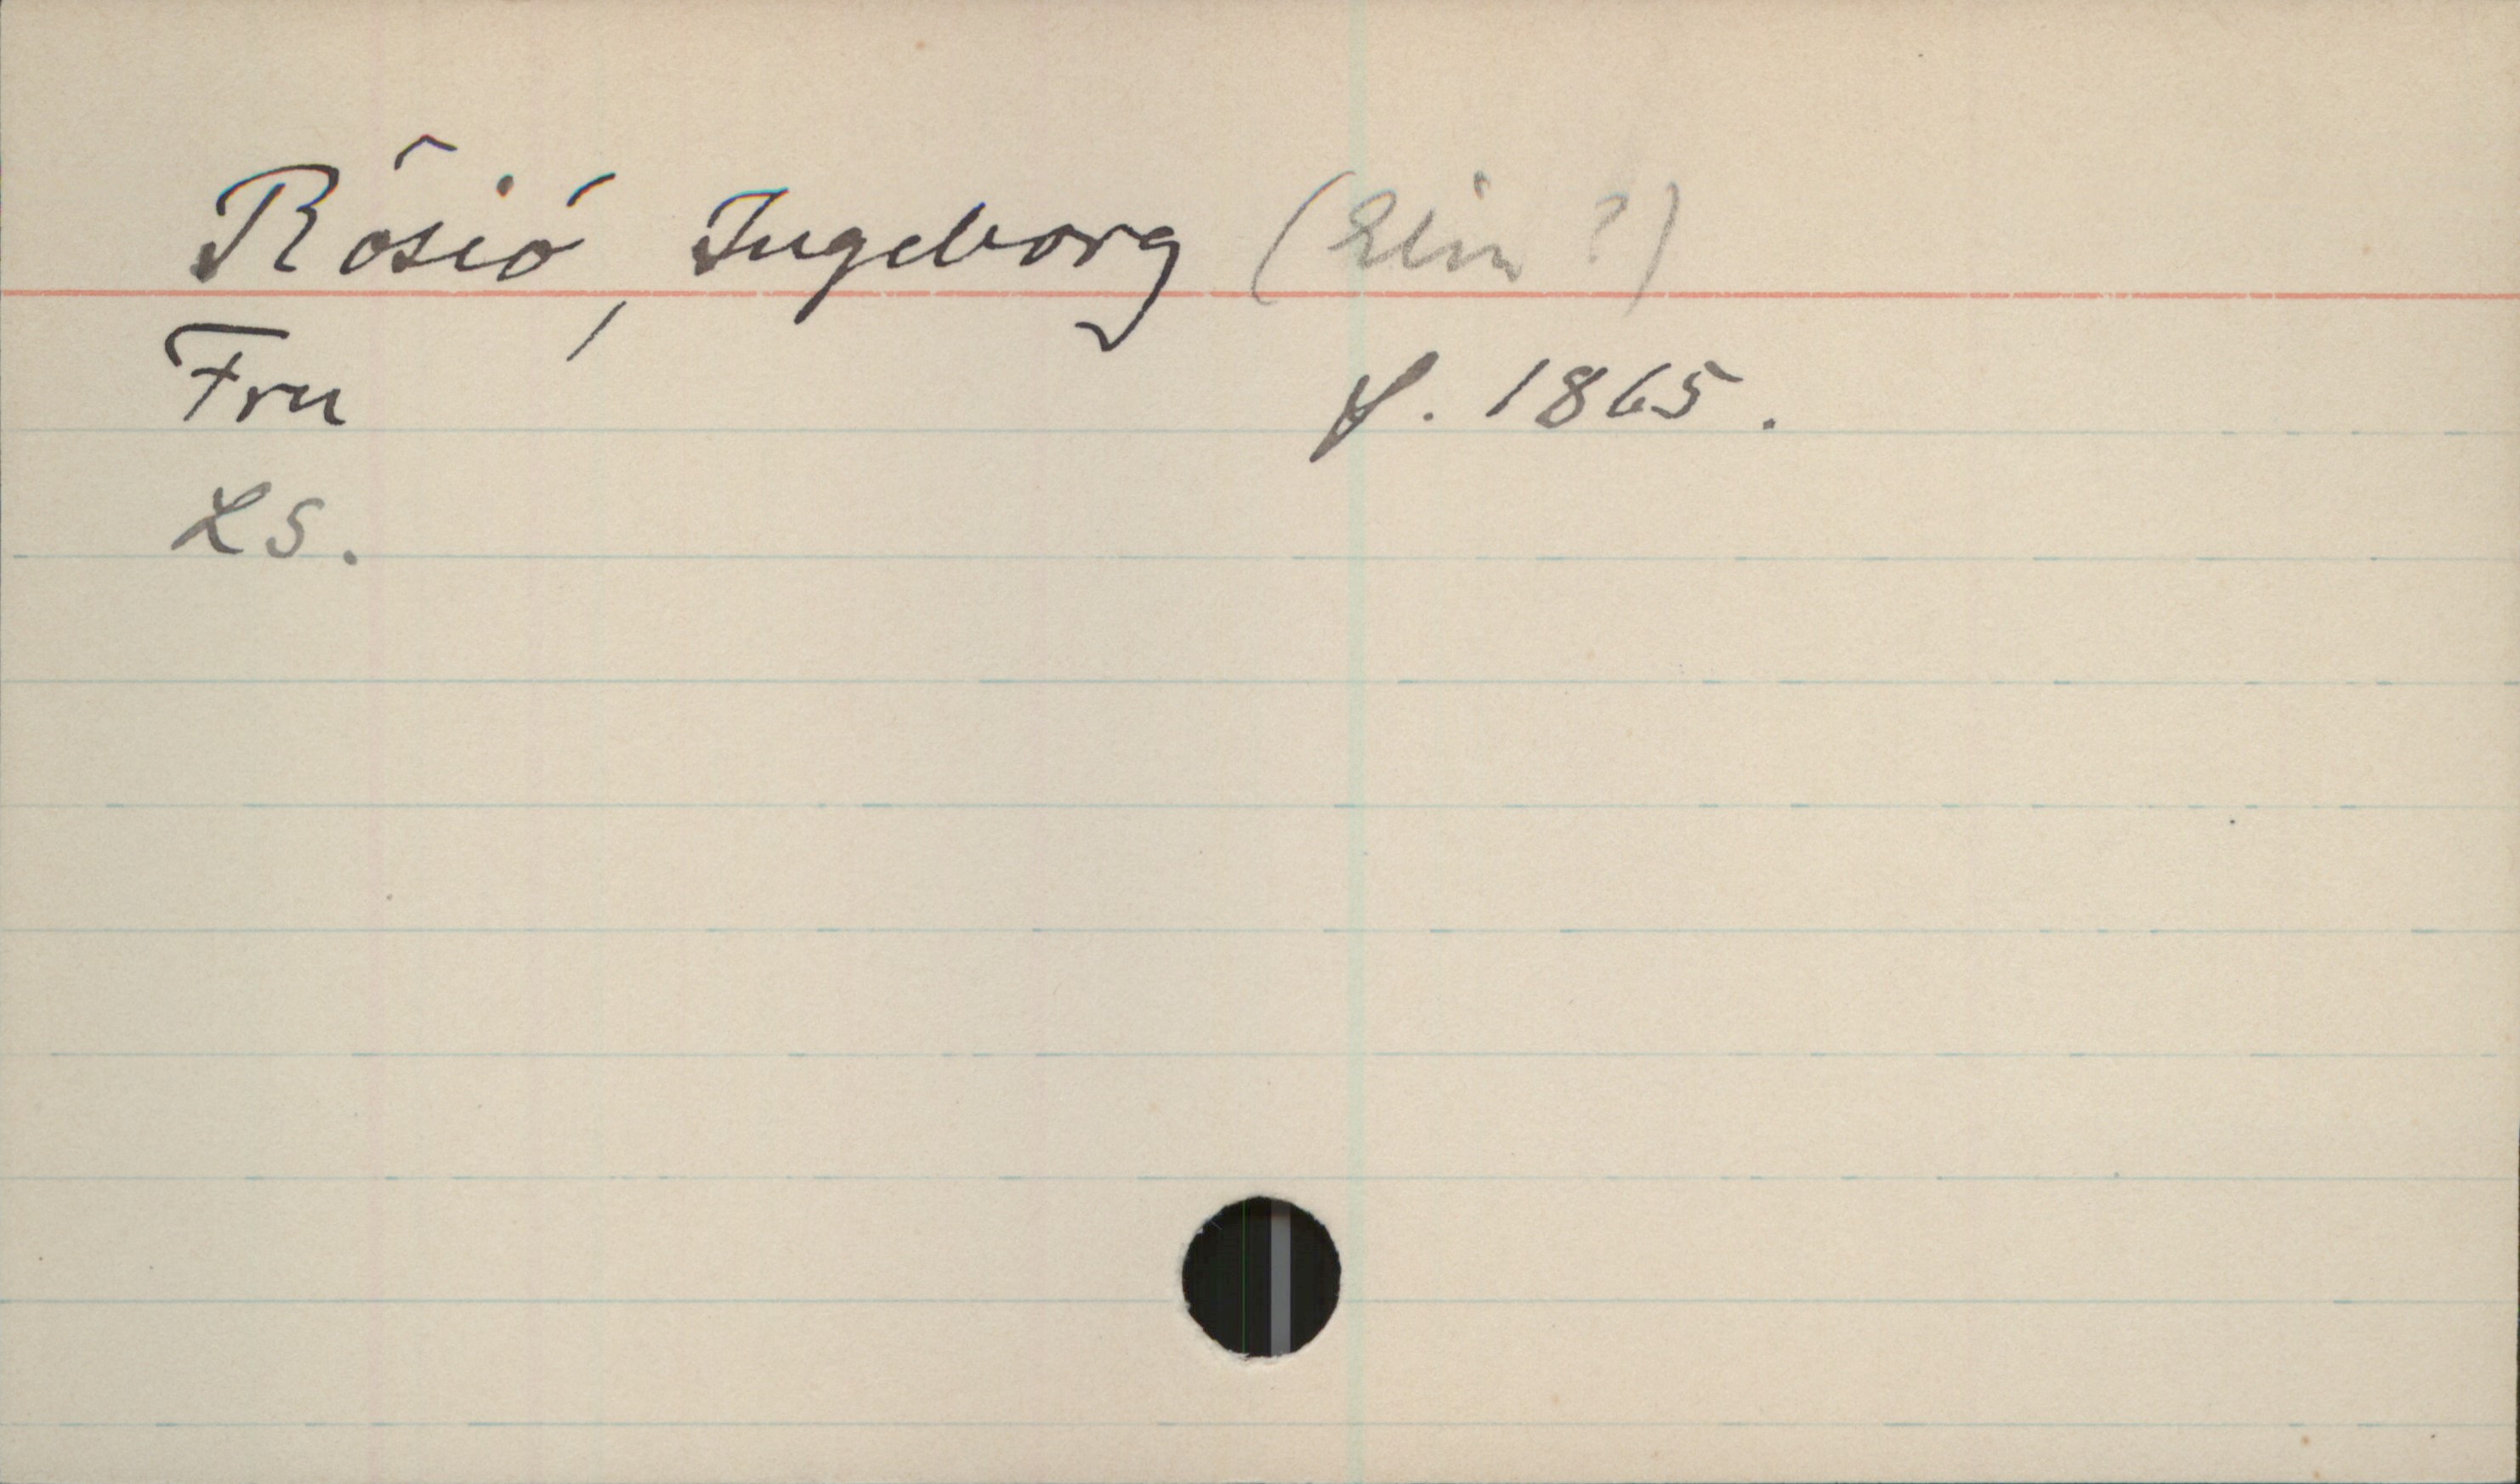 Rösió, Ingeborg (Elin?)
Fru f. 1865.
LS.